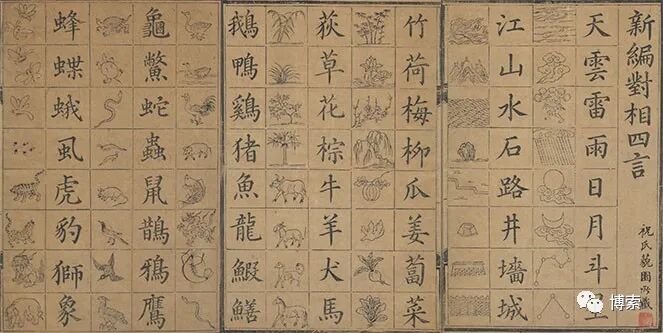 新編對相四言
天雲雷雨日月斗
江山水石路井墻城
竹荷梅柳瓜姜蔔菜
荻草花棕牛羊犬馬
鵝鴨鷄猪魚龍鰕鱔
龜鱉蛇蟲鼠鵲鴉鷹
蜂蝶蛾虱虎豹獅象
祝氏藐園所藏
博索